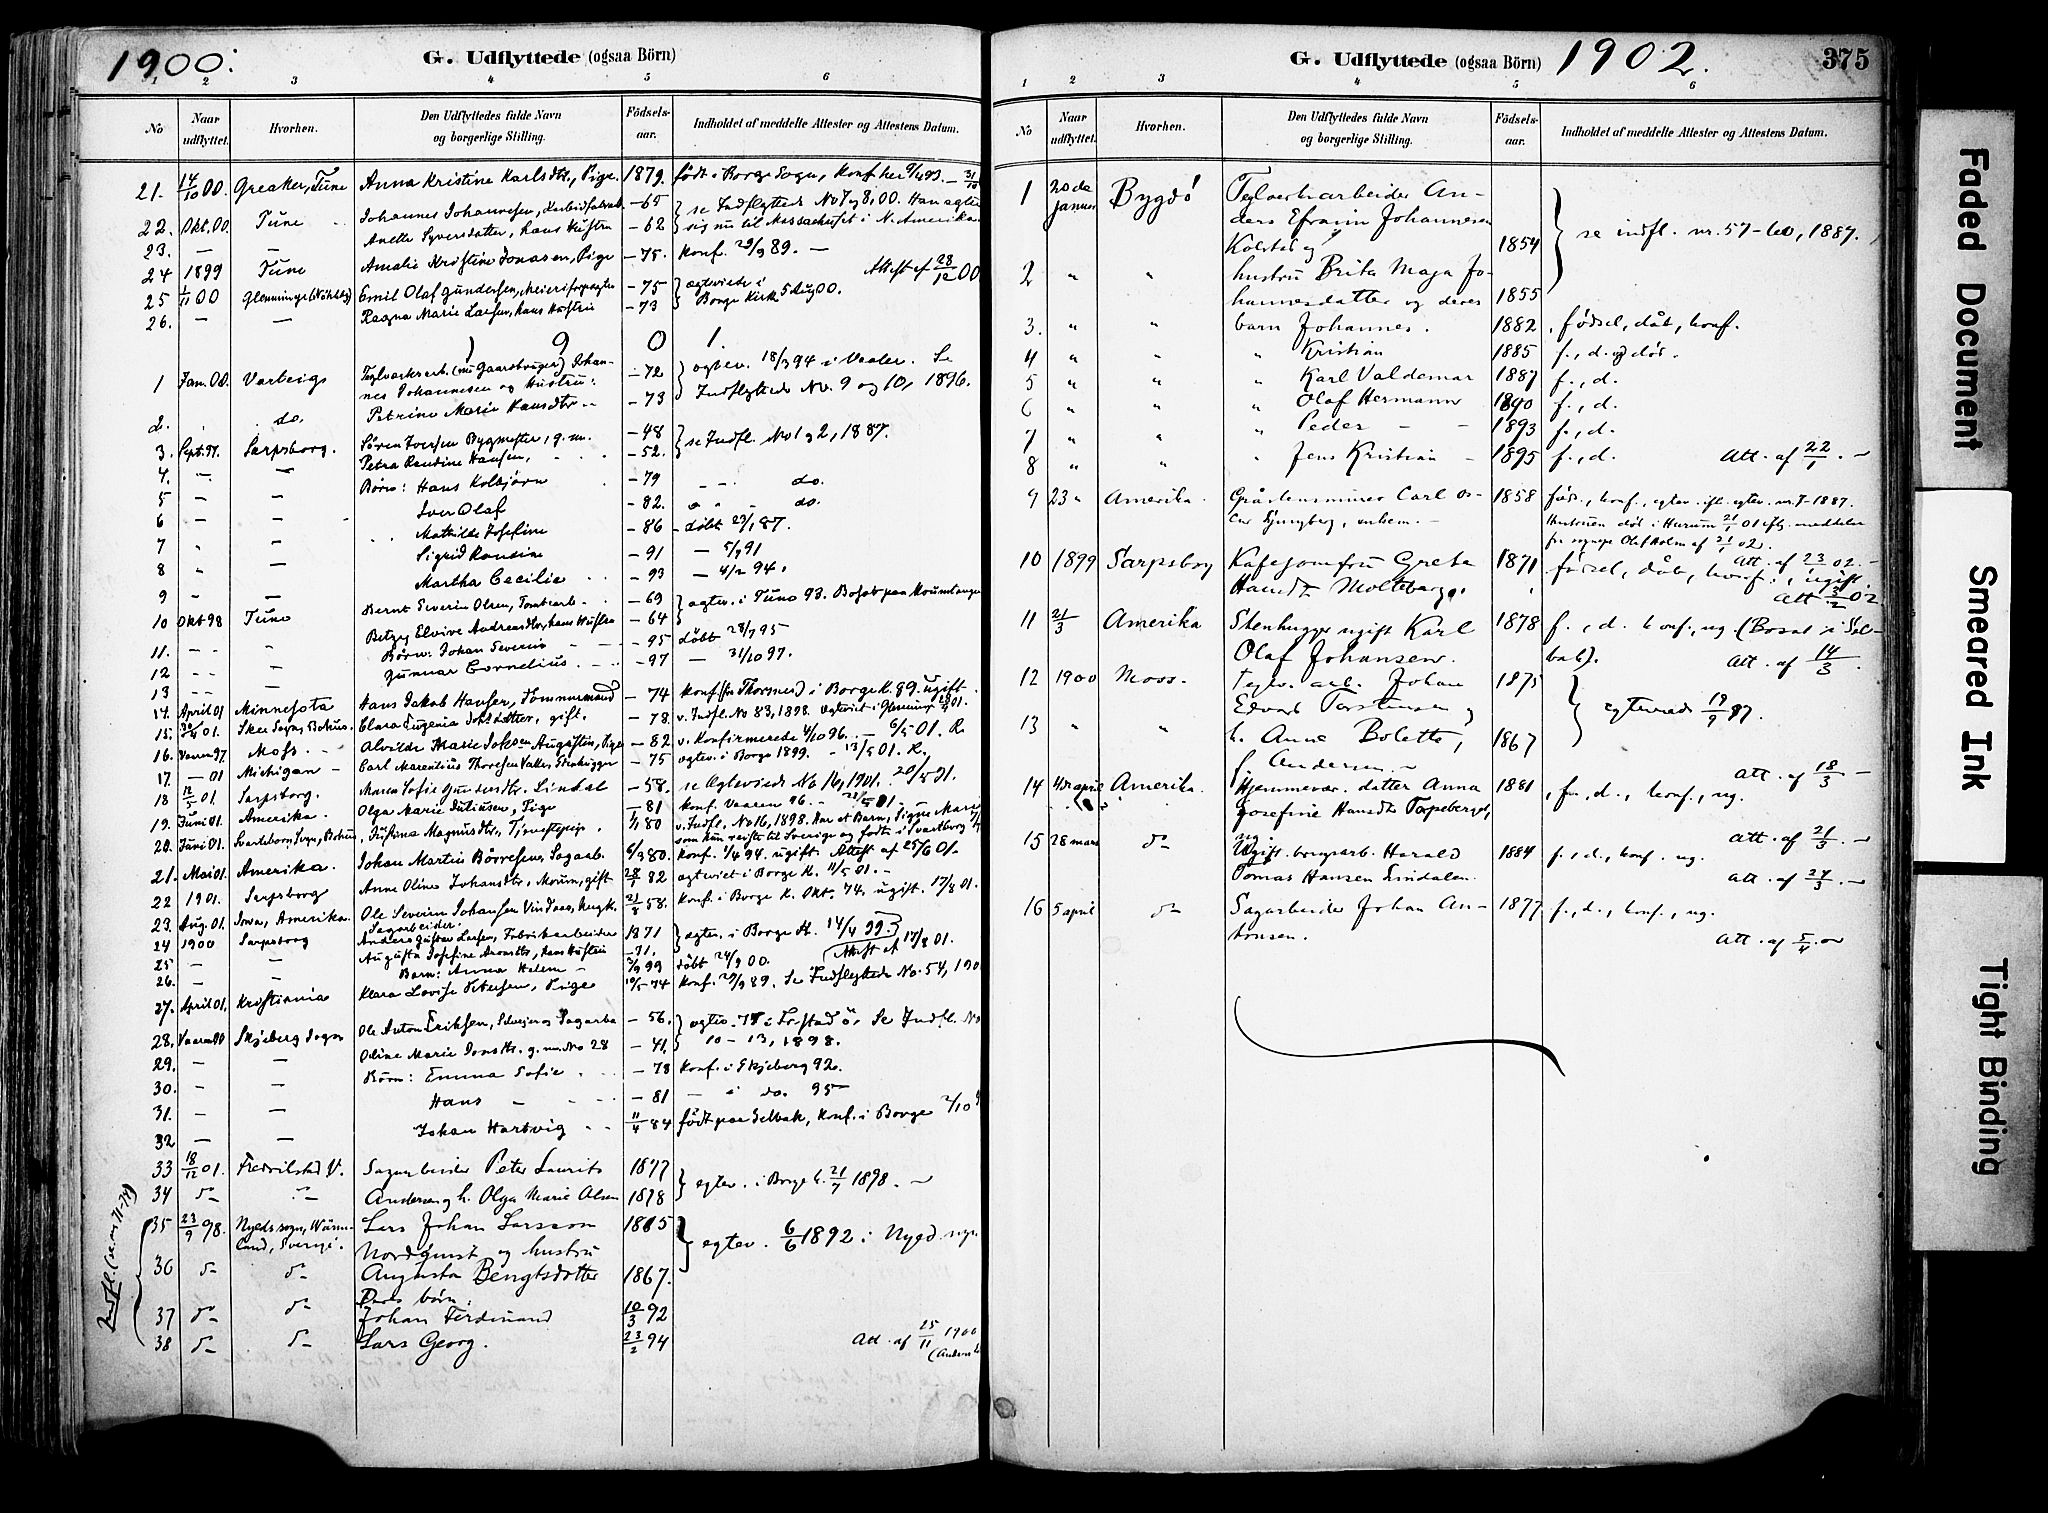 1900.
G. Udflyttede (ogsaa Börn)
1 2 3 4 5 6
No
Naar udflyttet.
Hvorhen.
Den Udflyttedes fulde Navn og borgerlige Stilling.
Födselsaar.
Indholdet af meddelte Attester og Attestens Datum.
21. 14/10 00. Greaker, Tune Anna Kristine Karlsdtr., Pige. 1879. født i Borge Sogn, Konf. her
22. Okt. 00. Tune Johannes Johannesen, - 65 se Indflyttede No 7 og 8, 00. Han agter
23. — — Anette Syversdatter, hans Hustru - 62 sig nu til Massachuset i N. Amerika
24 1899 Tune Amalie Kristine Jonasen, Pige - 75. Konf. 29/9 89. — Attest af 28/12 00
25 1/11 00 Glemminge Emil Olaf Gundersen, - 75 ægteviede i
26. — — Ragna Marie Larsen, hans Hustru - 73 Borge Kirke 5 Aug 00.
1 9 0 1.
1 Jan. 00. Varteigs Teglværksarb. (nu Gaardbruger) Johannes Johannesen og Hustru: - 72 ægtev. 18/3 94 i Vaaler. Se
2. do. Petrine Marie Hansdtr - 73 Indflyttede No. 9 og 10, 1896.
3. Sept. 97. Sarpsborg. Søren Iversen Bygmester, g. m. - 48 se Indfl. No 1 og 2, 1887.
4. — — Petra Randine Hansen, - 52.
5 — — Børn: Hans Kolbjørn - 79 — do.
6 — — Iver Olaf - 82. do.
7 — Mathilde Josefine - 86 - døbt 23/1 87.
8 — Sigrid Randine - 91 — 5/7 91
9 — — Martha Cecilie - 93 — 4/2 94.
10 Okt 98 Tune Bernt Severin Olsen, - 69 ægtev. i Tune 93.
11. — Betzy Elvive Andreasdtr, hans Hustru - 64
12 — Børn: Johan Severin - 95 døbt 28/7 95
13 — — Gunnar Cornelius. - 97 — 31/10 97.
14. April 01 Minnesota Hans Jakob Hansen, Tømmermand - 74 konf. (fra Thorsnes) i Borge K. 89. ugift.
15. 30/4 01. Clara Eugenia, gift. - 78. v. Indfl. No 83, 1898.
16. Vaaren 97. Moss. Alvilde Marie, Pige - 82 v. Konfirmerede 4/10 96. — 6/5 01. R.
17. — 01 Michigan — Carl Marentius Thoresen Stenhugger - 75 ægtev. i Borge 1899. - 13/5 01. R.
18 12/5 01. Sarpsborg. Maren Sofie - 58. se Ægteviede No 14, 1901. 20/5 01.
19. Juni 01. Amerika. Olga Marie Juliusen, Pige - 81 Konf. Vaaren 96.
20. Juni 01. Justina Magnusdtr, Tjenestepige. 1/1 80 v. Indfl. No 16, 1898. Har et Barn, Signe Marie
som hun reiste til Sverige og fødte i Svarteborg
21. Mai 01. Amerika. Johan Martin Børresen, Sagarb. 6/3 80. konf. 1/4 94. ugift. Attest af 25/6 01.
22 1901. Sarpsborg Anne Oline Johansdtr, Moum, gift 28/1 82 ægteviet i Borge K. 11/5 01.
23. Aug. 01. Iowa, Amerika. Ole Severin Johansen 21/8 58. konf. i Borge K. Okt. 74, ugift. 17/8 01.
Sagarbeider.
24 1900 Sarpsborg Anders Gustav Larsen, Fabrikarbeider 1871 ægtev. i Borge K. 14/4 99.
25 — — Augusta Josefine, hans Hustru - 71. Attest af 17/8 01.
26. — Barn: Anna Helene 3/9 99 døbt 24/9 00.
27. April 01. Kristiania Klara Lovise Petersen, Pige 19/5 74 konf. 29/9 89. Se Indflyttede No. 54, 190
28. Vaaren 00 Skjeberg Sogn Ole Anton Eriksen, Selveier og Sagarbe - 56. ægtev. 77 i Tristad ö. Se Indfl. No
29. — — Oline Marie g. m. No 28 - 41. 10 - 13, 1898.
30. — — Børn: Emma Sofie - 78 konf. i Skjeberg 92.
31. — — Hans - 81 — i do. 95
32 — — Johan Hartvig 11/4 84 født paa Selbak, konf. i Borge
33 18/12 01. Fredrikstad V. Sagarbeider Peter Laurits 1877 ægtev. i Borge k. 21/7 1898.
34 do do Andersen og h. Olga Marie Olsen 1878
35 23/9 98. Nyeds sogn, Wärmland, Sverige. Lars Johan Larsson 1865 ægtev. 6/6 1892 i Nyed sogn
Nordqvist og hustru
36 do do Augusta Bengtsdotter 1867.
Deres börn:
37 do do Johan Ferdinand 10/3 92
38 do do Lars Georg. 23/2 94 Att. af 25/11 1900
G. Udflyttede (ogsaa Börn) 1902. 375
1 2 3 4 5 6
No
Naar udflyttet.
Hvorhen.
Den Udflyttedes fulde Navn og borgerlige Stilling.
Födselsaar.
Indholdet af meddelte Attester og Attestens Datum.
1 20de Januar Bygdö Teglverksarbeider Anders Efraim Johannesen
Kolstad og 1854 se indfl. nr. 57-60, 1887.
2 " " hustru Brita Maja Johannesdatter og deres 1855
3. " " barn Johannes. 1882 födsel, dåb, konf.
4 " " " Kristian 1885 f., d. og död.
5 " " " Karl Valdemar 1887 f., d.
6 " " " Olaf Hermann 1890 f., d.
7 " " " Peder 1893 f., d.
8 " " " Jens Kristian 1895 f., d. Att. af 22/1.
9 23 " Amerika. Gråstensminer Carl Oscar Ljungberg, enkem. 1858 föd., konf., egtev. ifl. egtev. nr. 7 - 1887.
Hustruen död i Hurum 21/1 01 iflg. meddelse
fra sognepr. Olaf Holm af 21/1 02.
Att. af 23 02.
10 1899 Sarpsborg Kafejomfru Greta 1871 födsel, dåb, konf., ugift.
Hansdtr Molteberg. Att 3/12 02.
11 21/3 Amerika Stenhugger ugift Karl 1878 f., d. konf., ug. (Bosat i Selbak).
Olaf Johansen. Att. af 14/3.
12 1900 Moss. teglv. arb. Johan 1875
Edvart Torstensen og egteviede 19/9 97.
13 " " h. Anne Bolette, 1867
f. Andersen. Att. af 18/3
14 4de april Amerika. Hjemmevær. datter Anna 1881 f., d., konf., ug.
Josefine Hansdtr Torpeberget,
ug. Att. af 21/3
15 28 mars do Ugift bergsarb. Harald 1884 f., d., konf. ug.
Tomas Hansen Lindalen. Att. af 24/3.
16 5 april do Sagarbeider Johan Antonsen. 1877 f., d., konf., ug.
Att. af 5/4
Faded Document
Smeared Ink
Tight Binding